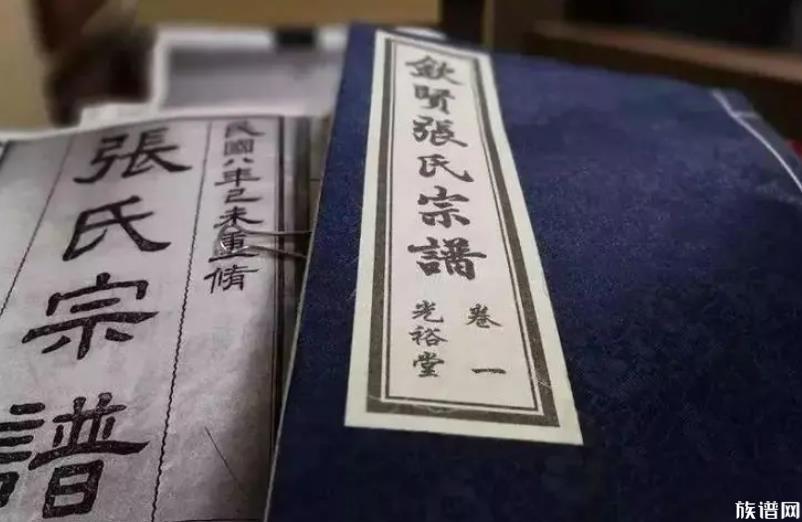 民國八年己未重脩
張氏宗譜
欽賢張氏宗譜
卷一
光裕堂
族谱网